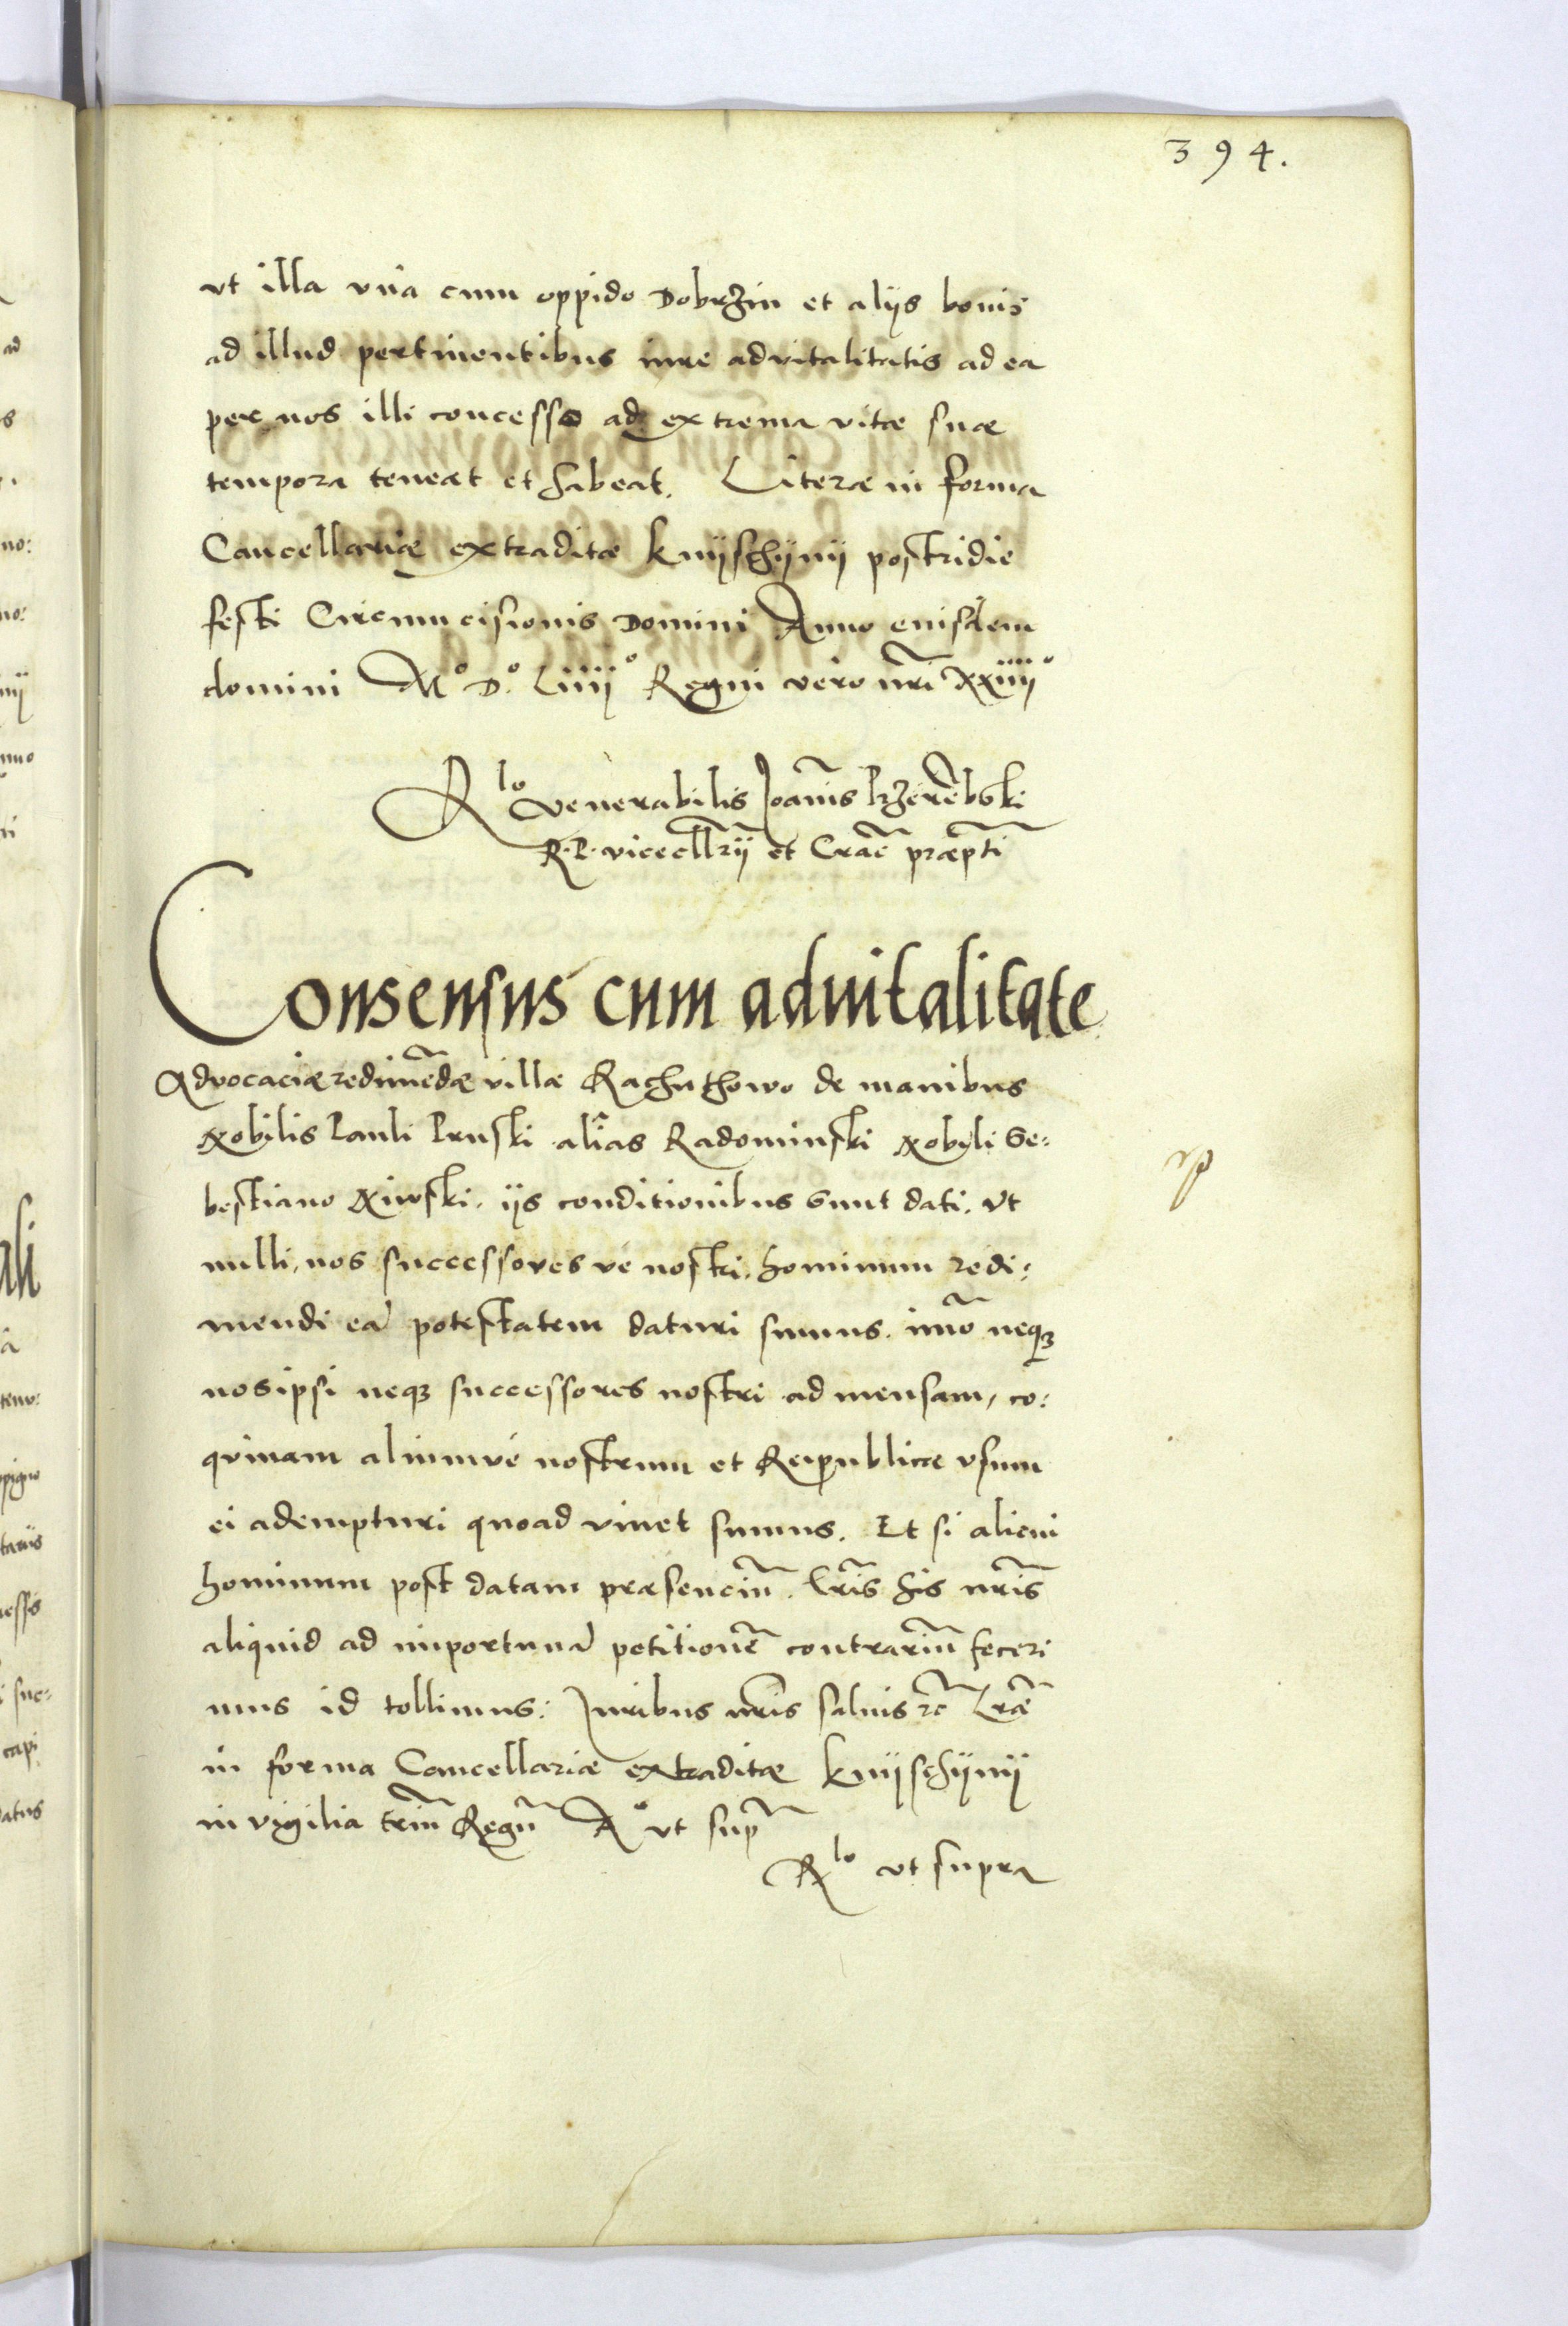 394.
vt illa vna cum oppido Dobrzin et alijs bonis
ad illud pertinentibus iure advitalitatis ad ea
per nos illi concesso ad extrema vitæ suæ
tempora teneat et habeat. Literæ in forma
Cancellariæ extraditæ Knijschijnij postridie
festi Circumcisionis Domini Anno eiusdem
domini Mº Dº Liiijº Regni vero nr̃i xxiiijº
Rlo venerabilis Joañis Przerẽbski
R. P. vicecllr̃ij et Crac̃ præpti
Consensus cum aduitalitate
Advocaciæ redimẽdæ villæ Rachuthowo de manibus
Nobilis Pauli Pruski alias Radominski Nobili Se:
bestiano Niwski. ijs conditionibus sunt dati. Vt
nulli, nos successores ve nostri, hominum redi:
mendi eã potestatem daturi sumus. imõ neqz
nosipsi neqz successores nostri ad mensam, co:
quinam aliumve nostrum et Reipublicæ vsum
ei adempturi quoad viuet sumus. Et si alicui
hominum post datam præsenciũ. lr̃is his nr̃is
aliquid ad importunã petitionẽ contrariũ feceri
mus id tollimus: Juribus nr̃is saluis ꝛc̃ Lr̃æ
in forma Cancellariæ extraditæ Knijschijnij
in vigilia triũ Regũ Aº vt supͣ
Rlo vt supra